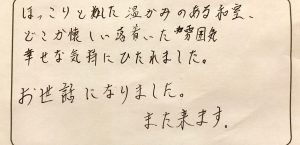 ほっこりと熟した温かみのある和室、
どこか懐しい落着いた雰囲気
幸せな気持にひたれました。
お世話になりました。
また来ます。